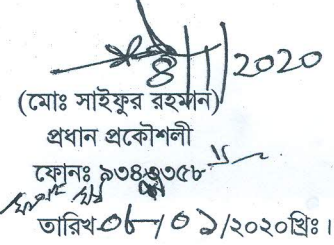 ৪/১/2020
(মোঃ সাইফুর রহমান)
প্রধান প্রকৌশলী
ফোনঃ ৯৩৪৩৩৫৮
তারিখ-০৮/০১/২০২০খ্রিঃ।